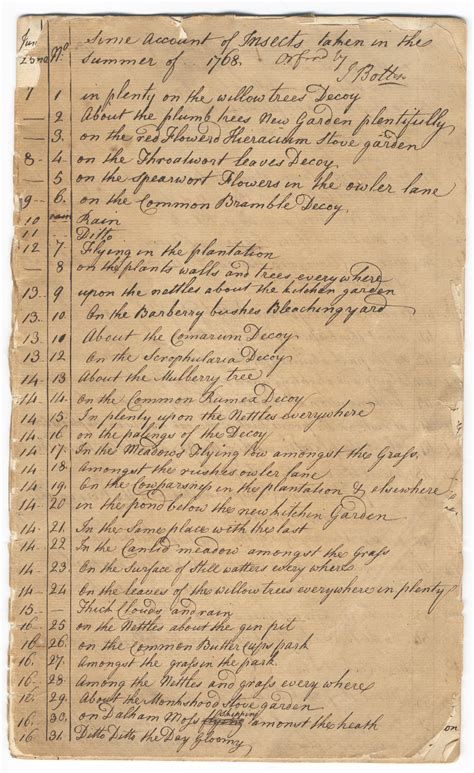 June No Some Account of Insects taken in the
23 Summer of 1768. Orford by
J Bolton
7 1 in plenty on the willow trees Decoy
— 2 About the plumb trees New Garden plentifully
— 3. on the red Flowerd Hieracium Stove garden
8 - 4. on the Throatwort leaves Decoy
- 5 on the spearwort Flowers in the owler lane
9 - 6. on the Common Bramble Decoy
10 rain Rain
11 — Ditto
12 7 Flying in the plantation
— 8 on the plants walls and trees everywhere
13. 9 upon the nettles about the kitchen garden
13. 10. On the Barberry bushes Bleachingyard
13 11 About the Comarum Decoy
13 12 On the Scrophularia Decoy
14 - 13 About the Mulberry tree
14 14. on the Common Rumea Decoy
14 - 15. In plenty upon the Nettles everywhere
14 - 16 on the palings of the Decoy
14 - 17. In the Meadows Flying low amongst the Grass.
14 18. Amongst the rushes owler lane
14 19. On the Cowparsnep in the plantation & elsewhere
14 - 20 in the pond below the new kitchin Garden
14 - 21. In the Same place with the last
14. 22. In the meadow amongst the Grass
14 - 23 On the Surface of Still watters every where
14 - 24 On the leaves of the willow trees everywhere in plenty
15 - — Thick Clouds, and rain
16 - 25 on the Nettles about the pit
16 - 26. on the Common Butter Cups park
16. 27. Amongst the grass in the park.
16. 28. Among the Nettles and grass every where
16. 29. About the Monkshood Stove garden
16 - 30. on Dalham Moss skipping amonst the heath
16 31. Ditto Ditto the Day Gloomy